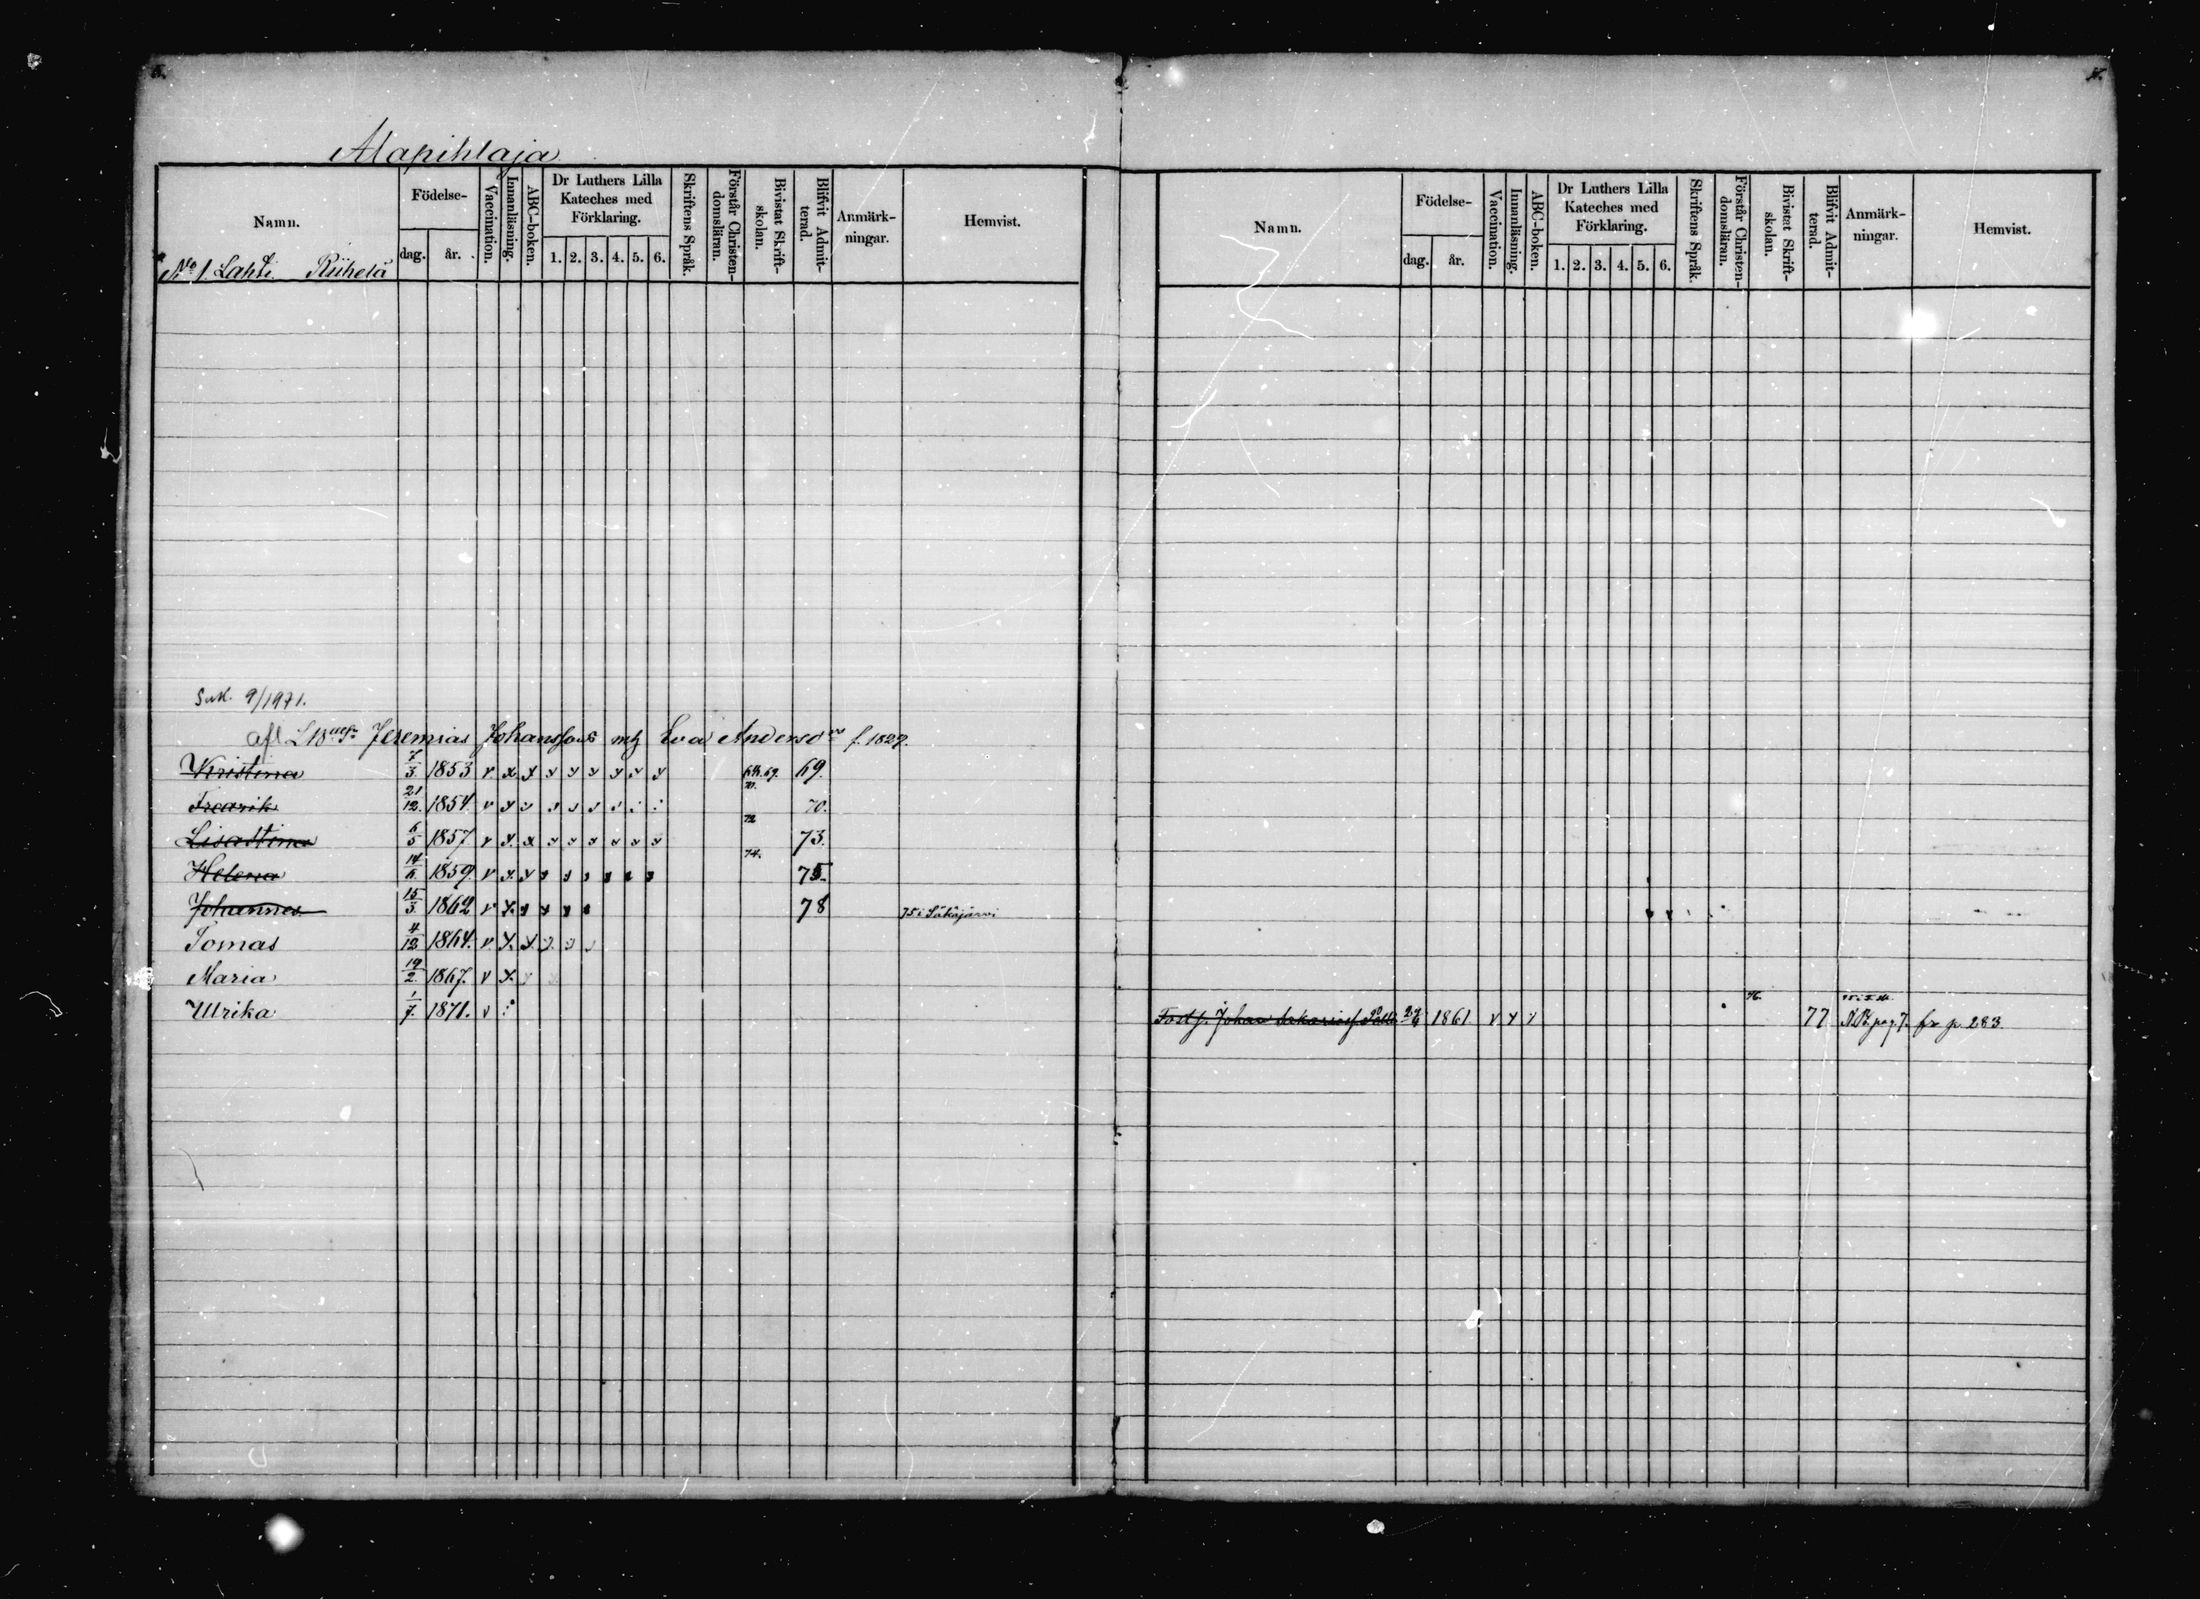 Alapihlaja
Namn. Födelse- dag. år. Vaccination. Innanläsning. ABC-boken. Dr Luthers Lilla Kateches med Förklaring. 1. 2. 3. 4. 5. 6. Skriftens Språk. Förstår Christendomsläran. Bivistat Skriftskolan. Blifvit Admitterad. Anmärkningar. Hemvist.
No 1. Lahti Riihelä
Sak. 9/1971.
afl Jeremias Johansson mh Eva Anderso f. 1827.
Kristina 7/3 1853 69. 69.
Fredrik 21/12 1854 70. 70.
Lisastina 6/5 1857 72 73.
Helena 14/6 1859. 74. 75.
Johannes 15/3 1862 78 75 i Säkäjärvi
Tomas 4/12 1864.
Maria 19/2 1867.
Ulrika 1/7 1871.
Namn. Födelse- dag. år. Vaccination. Innanläsning. ABC-boken. Dr Luthers Lilla Kateches med Förklaring. 1. 2. 3. 4. 5. 6. Skriftens Språk. Förstår Christendomsläran. Bivistat Skriftskolan. Blifvit Admitterad. Anmärkningar. Hemvist.
Johan Sakariass 1861 76. 77 pag 7. fr p. 283.